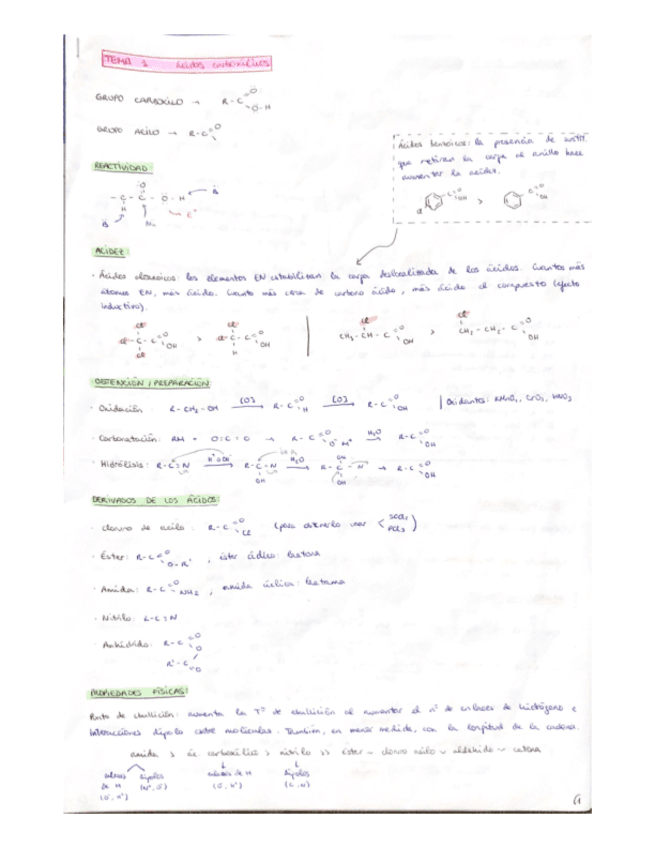 TEMA 1 Ácidos carboxílicos
GRUPO CARBOXILO → R-C=O O-H
GRUPO ACILO → R-C=O
Ácidos benzoicos: la presencia de sustit.
que retiran la carga al anillo hace
aumentar la acidez.
Cl C=O OH > C=O OH
REACTIVIDAD:
-C-C-O-H B
H
B Nu E⁺
ACIDEZ:
· Ácidos alcanoicos: los elementos EN estabilizan la carga deslocalizada de los ácidos. Cuantos más
átomos EN, más ácido. Cuanto más cerca de carbono ácido, más ácido el compuesto (efecto
inductivo).
Cl Cl
Cl-C-C=O OH > Cl-C-C=O OH | CH₃-CH-C=O OH > CH₂-CH₂-C=O OH
Cl H
OBTENCIÓN / PREPARACIÓN:
· Oxidación: R-CH₂-OH [O] → R-C=O H [O] → R-C=O OH | Oxidantes: KMnO₄, CrO₃, HNO₃
· Carbonatación: RM + O=C=O → R-C=O O⁻M⁺ H₂O → R-C=O OH
· Hidrólisis: R-C≡N → R-C=N OH H₂O → R-C-N OH → R-C=O OH
DERIVADOS DE LOS ÁCIDOS:
· Cloruro de acilo: R-C=O Cl (para obtenerlo usar SOCl₂ PCl₅)
· Éster: R-C=O O-R' , éster cíclico: lactona
· Amida: R-C=O NH₂ , amida cíclica: lactama
· Nitrilo: R-C≡N
· Anhídrido: R-C=O
O
R'-C=O
PROPIEDADES FÍSICAS:
Punto de ebullición: aumenta la Tª de ebullición al aumentar el nº de enlaces de hidrógeno e
interacciones dipolo entre moléculas. También, en menor medida, con la longitud de la cadena.
amida > ác. carboxílico > nitrilo >> éster ~ cloruro acilo ~ aldehído ~ cetona
enlaces dipolos enlaces de H dipolos
de H
1